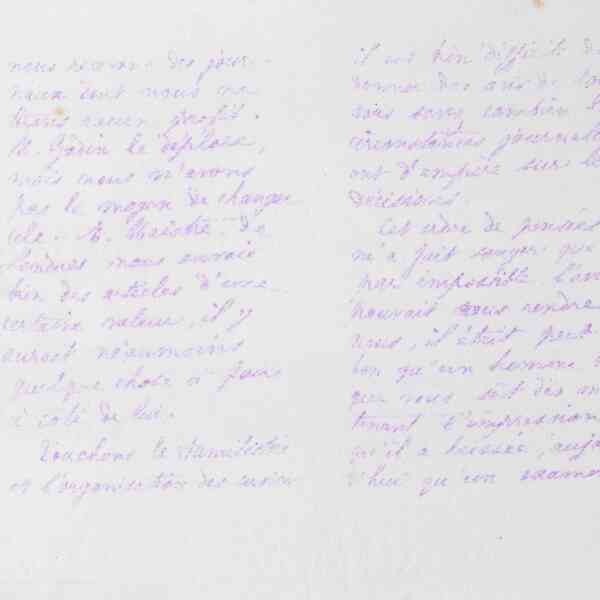 nous recevons des jour-
naux dont nous ne
tirons aucun profit.
M. Godin le déplore,
mais nous n'avons
pas le moyen de changer
cela. M. Maistre de
Londres nous envoie
bien des articles d'une
certaine valeur, il y
aurait néanmoins
quelque chose à faire
à côté de lui.
Touchons le Familistère
et l'organisation des services
il est bien difficile de
donner des avis de loin
vous savez combien l
circonstances journaliè
ont d'empire sur le
décisions.
Cet ordre de pensées
m'a fait songer que
par impossible l'on
pouvait vous rendre
nous, il était peut
bon qu'un homme
que nous soit dès
tenant l'impression
qu'il a laissée, aujo
d'hui qu'on